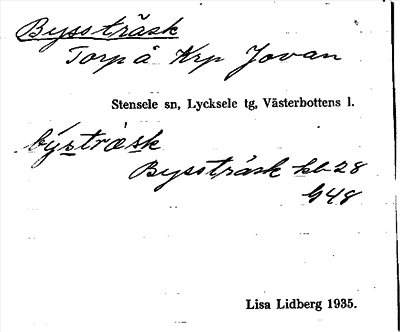 Byssträsk
Torp å Krp Jovan
Stensele sn, Lycksele tg, Västerbottens l.
býsträsk
Byssträsk hb 28
G48
Lisa Lidberg 1935.